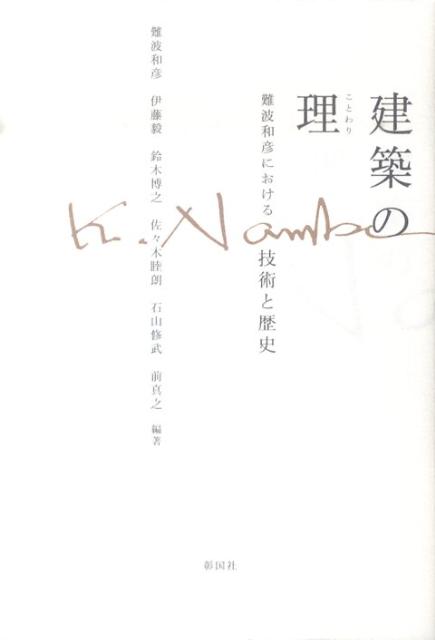 建築の
理
ことわり
難波和彦における
技術と歴史
K. Namba
難波和彦 伊藤毅 鈴木博之 佐々木睦朗 石山修武 前真之 編著
彰国社